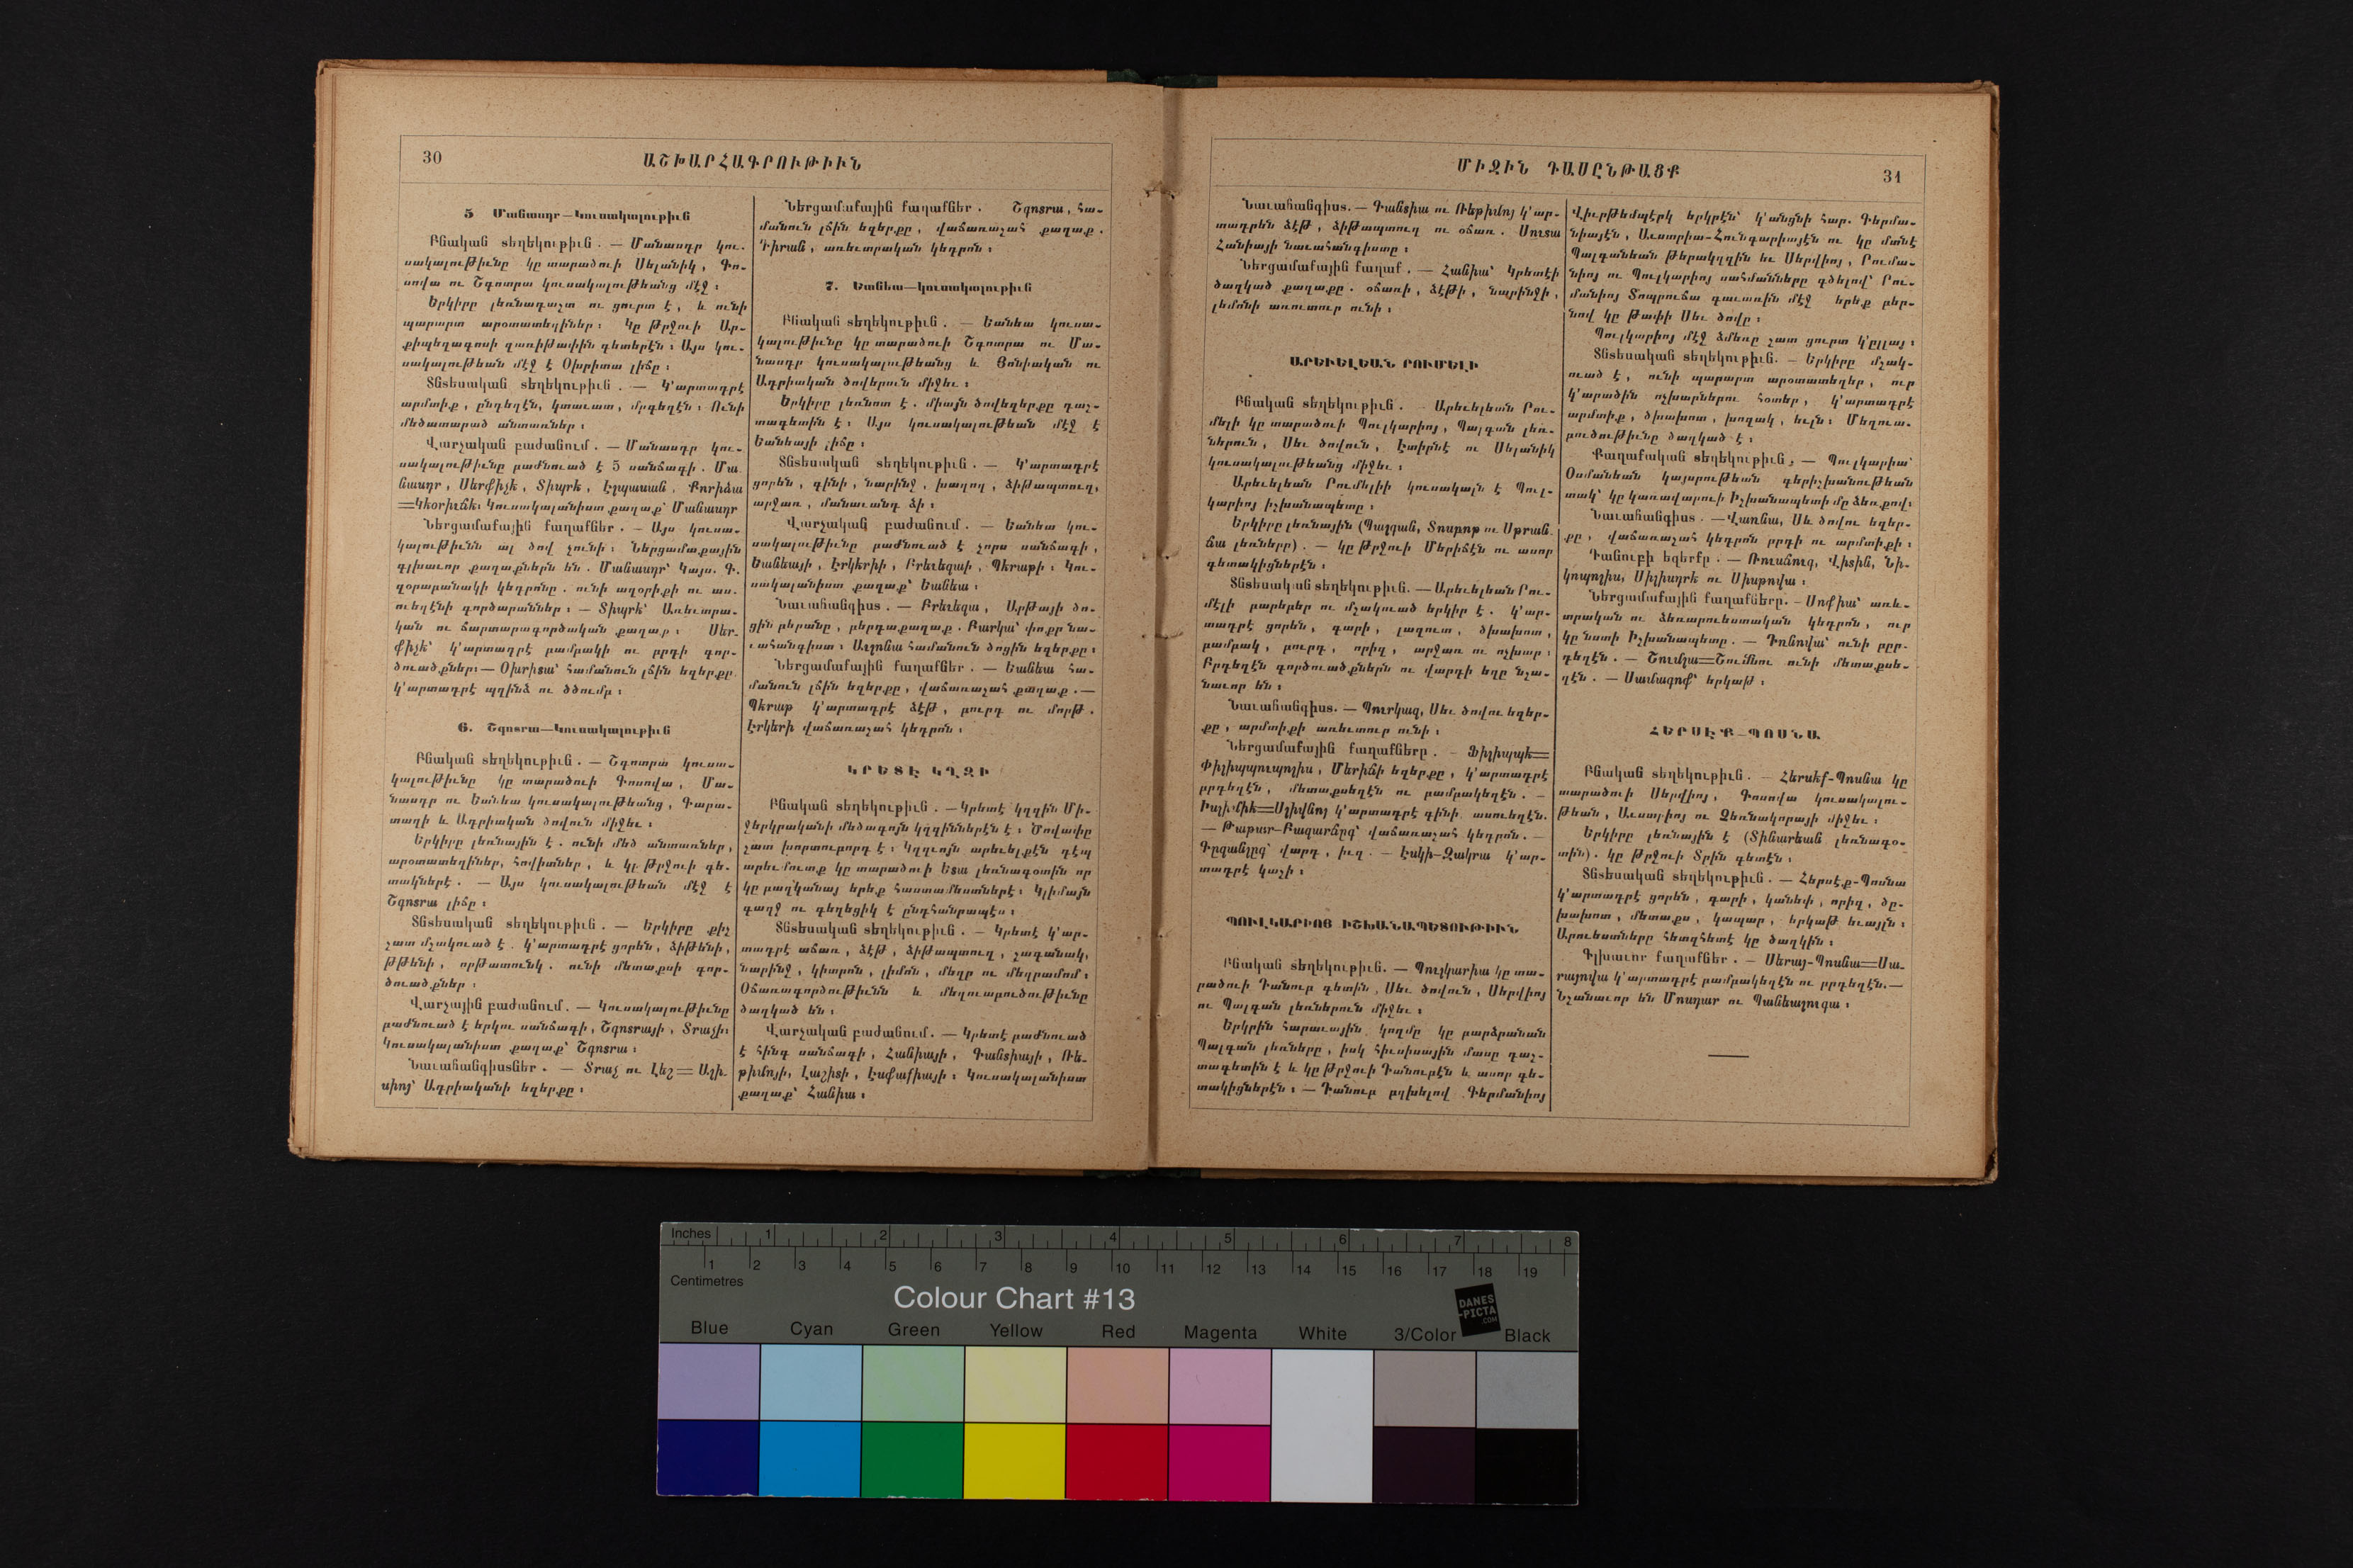 30
ԱՇԽԱՐՀԱԳՐՈՒԹԻՒՆ
5 Մանասդր—Կուսակալութիւն
Բնական տեղեկութիւն. — Մանասդր կու-
սակալութիւնը կը տարածուի Սելանիկ, Գո-
սովա ու Շգոտրա կուսակալութեանց մէջ։
Երկիրը լեռնադաշտ ու ցուրտ է, և ունի
պարարտ արօտատեղիներ։ Կը թրջուի Ար-
քիպեղագոսի զառիթափին գետերէն։ Այս կու-
սակալութեան մէջ է Օխրիտա լիճը։
Տնտեսական տեղեկութիւն. — Կ՚արտադրէ
արմտիք, ընդեղէն, կտաւատ, մրգեղէն։ Ունի
մեծատարած անտառներ։
Վարչական բաժանում. — Մանասդր կու-
սակալութիւնը բաժնուած է 5 սանճագի. Մա
նասդր, Սերֆիչէ, Տիպրէ, Էլպասան, Քորիձա
=Կէօրիւճէ։ Կուսակալանիստ քաղաք՝ Մանասդր
Ներցամաքային քաղաքներ. — Այս կուսա-
կալութիւնն ալ ծով չունի։ Ներցամաքային
գլխաւոր քաղաքներն են. Մանասդր՝ Կայս. Գ.
զօրաբանակի կեդրոնը. ունի աղօրիքի ու աս.
ուեղէնի գործարաններ։ — Տիպրէ՝ Առեւտրա-
կան ու ճարտարագործական քաղաք։ Սեր-
ֆիչէ՝ կ՚արտադրէ բամբակի ու բրդի գոր-
ծուածքներ։ — Օխրիտա՝ համանուն լճին եզերքը
կ՚արտադրէ պղինձ ու ծծումբ։
6. Շգոտրա—Կուսակալութիւն
Բնական տեղեկութիւն. — Շգոտրա կուսա-
կալութիւնը կը տարածուի Գոսովա, Մա-
նասդր ու Եանեա կուսակալութեանց, Գարա-
տաղի և Ադրիական ծովուն միջեւ։
Երկիրը լեռնային է. ունի մեծ անտառներ,
արօտատեղիներ, հովիտներ, և կը թրջուի գե-
տակներէ. — Այս կուսակալութեան մէջ է
Շգոտրա լիճը։
Տնտեսական տեղեկութիւն. — Երկիրը քիչ
շատ մշակուած է. կ՚արտադրէ ցորեն, ձիթենի,
թթենի, որթատունկ. ունի մետաքսի գոր-
ծուածքներ։
Վարչային բաժանում. — Կուսակալութիւնը
բաժնուած է երկու սանճագի, Շգոտրայի, Տրաչի։
Կուսակալանիստ քաղաք՝ Շգոտրա։
Նաւահանգիստներ. — Տրաչ ու Լեշ=Ալի-
սիոյ՝ Ադրիականի եզերքը։
Ներցամաքային քաղաքներ. Շգոտրա, հա-
մանուն լճին եզերքը, վաճառաշահ քաղաք.
Դիրան, առեւտրական կեդրոն։
7. Եանեա—կուսակալութիւն
Բնական տեղեկութիւն. — Եանեա կուսա-
կալութիւնը կը տարածուի Շգոտրա ու Մա-
նասդր կուսակալութեանց և Յոնիական ու
Ադրիական ծովերուն միջեւ։
Երկիրը լեռնոտ է. միայն ծովեզերքը դաշ-
տագետին է։ Այս կուսակալութեան մէջ է
Եանեայի լիճը։
Տնտեսական տեղեկութիւն. — Կ՚արտադրէ
ցորեն, գինի, նարինջ, խաղող, ձիթապտուղ,
արջառ, մանաւանդ ձի։
Վարչական բաժանում. — Եանեա կու-
սակալութիւնը բաժնուած է չորս սանճագի,
Եանեայի, Էրկերիի, Բրեւեզայի, Պերաթի։ Կու-
սակալանիստ քաղաք՝ Եանեա։
Նաւահանգիստ. — Բրեւեզա, Արթայի ծո-
ցին բերանը, բերդաքաղաք. Բարկա՝ փոքր նա-
ւահանգիստ։ Աւլոնեա համանուն ծոցին եզերքը։
Ներցամաքային քաղաքներ. — Եանեա հա-
մանուն լճին եզերքը, վաճառաշահ քաղաք. —
Պերաթ կ՚արտադրէ ձէթ, բուրդ ու մորթ.
Էրկերի վաճառաշահ կեդրոն։
ԿՐԵՏԷ ԿՂԶԻ
Բնական տեղեկութիւն. — Կրետէ կղզին Մի-
ջերկրականի մեծագոյն կղզիններէն է։ Ծովափը
շատ խորտուբորդ է։ Կղզւոյն արեւելքէն դէպ
արեւմուտք կը տարածուի Ետա լեռնագօտին որ
կը բաղկանայ երեք հաստամէստներէ։ Կլիմայն
գաղջ ու գեղեցիկ է ընդհանրապէս։
Տնտեսական տեղեկութիւն. — Կրետէ կ՚ար-
տադրէ աճառ, ձէթ, ձիթապտուղ, շագանակ,
նարինջ, կիտրոն, լիմոն, մեղր ու մեղրամոմ։
Օճառագործութիւնն և մեղուաբուծութիւնը
ծաղկած են։
Վարչական բաժանում. — Կրետէ բաժնուած
է հինգ սանճագի, Հանիայի, Գանտիայի, Ռե-
թիմոյի, Լաշիտի, Էսֆաքիայի։ Կուսակալանիստ
քաղաք՝ Հանիա։
ՄԻՋԻՆ ԴԱՍԸՆԹԱՑՔ
31
Նաւահանգիստ. — Գանտիա ու Ռեթիմոյ կ՚ար-
տադրեն ձէթ, ձիթապտուղ ու օճառ. Սուտա
Հանիայի նաւահանգիստը։
Ներցամաքային քաղաք. — Հանիա՝ Կրետէի
ծաղկած քաղաքը. օճառի, ձէթի, նարինջի,
լեմոնի առուտուր ունի։
ԱՐԵՒԵԼԵԱՆ ՐՈՒՄԵԼԻ
Բնական տեղեկութիւն. Արեւելեան Րու-
մելի կը տարածուի Պուլկարիոյ, Պալգան լեռ-
ներուն, Սեւ ծովուն, Էտիրնէ ու Սելանիկ
կուսակալութեանց միջեւ։
Արեւելեան Րումելիի կուսակալն է Պուլ-
կարիոյ իշխանապետը։
Երկիրը լեռնային (Պալգան, Տոսբոթ ու Սթրան
ճա լեռները). — կը թրջուի Մերիճէն ու ասոր
գետակիցներէն։
Տնտեսական տեղեկութիւն. — Արեւելեան Րու-
մէլի բարեբեր ու մշակուած երկիր է. կ՚ար-
տադրէ ցորեն, գարի, լազուտ, ծխախոտ,
բամբակ, բուրդ, որիզ, արջառ ու ոչխար։
Բրդեղէն գործուածքներն ու վարդի եղը նշա-
նաւոր են։
Նաւահանգիստ. — Պուրկազ, Սեւ ծովու եզեր-
քը, արմտիքի առեւտուր ունի։
Ներցամաքային քաղաքները. — Ֆիլիպպէ=
Փիլիպպուպոլիս, Մերիճի եզերքը, կ՚արտադրէ
բրդեղէն, մետաքսեղէն ու բամբակեղէն. —
Իսլիմիէ=Սլիվնոյ կ՚արտադրէ գինի ասուեղէն.
— Թաթար-Բազարճըգ՝ վաճառաշահ կեդրոն. —
Գըզանլըգ՝ վարդ, իւղ. — Էսկի-Զակրա կ՚ար-
տադրէ կաշի։
ՊՈՒԼԿԱՐԻՈՅ ԻՇԽԱՆԱՊԵՏՈՒԹԻՒՆ
Բնական տեղեկութիւն. — Պուլկարիա կը տա-
րածուի Դանուբ գետին, Սեւ ծովուն, Սերվիոյ
ու Պալգան լեռներուն միջեւ։
Երկրին հարաւային կողմը կը բարձրանան
Պալգան լեռները, իսկ հիւսիսային մասը դաշ-
տագետին է և կը թրջուի Դանուբէն և ասոր գե-
տակիցներէն։ — Դանուբ բղխելով Գերմանիոյ
Վիւրթեմպէրկ երկրէն՝ կ՚անցնի հար. Գերմա-
նիայէն, Աւստրիա-Հունգարիայէն ու կը մտնէ
Պալգանեան թերակղզին եւ Սերվիոյ, Րումա-
նիոյ ու Պուլկարիոյ սահմանները գծելով՝ Րու-
մանիոյ Տոպրուճա գաւառին մէջ երեք բեր-
նով կը թափի Սեւ ծովը։
Պուլկարիոյ մէջ ձմեռը շատ ցուրտ կ՚ըլլայ։
Տնտեսական տեղեկութիւն. — Երկիրը մշակ-
ուած է, ունի պարարտ արօտատեղեր, ուր
կ՚արածին ոչխարներու հօտեր, կ՚արտադրէ
արմտիք, ծխախոտ, խողակ, եւլն։ Մեղուա-
բուծութիւնը ծաղկած է։
Քաղաքական տեղեկութիւն; — Պուլկարիա՝
Օսմանեան կայսրութեան գերիշխանութեան
տակ՝ կը կառավարուի Իշխանապետի մը ձեռքով։
Նաւահանգիստ. — Վառնա, Սև ծովու եզեր-
քը, վաճառաշահ կեդրոն բրդի ու արմտիքի։
Դանուբի եզերքը. — Ռուսճուգ, Վիտին, Նի-
կոպոլիս, Սիլիսդրէ ու Սիսթովա։
Ներցամաքային քաղաքները. — Սոֆիա՝ առև-
տրական ու ձեռարուեստական կեդրոն, ուր
կը նստի Իշխանապետը. — Դռնովա՝ ունի բըր-
դեղէն. — Շումլա=Շումնու ունի մետաքսե-
ղէն. — Սամագով՝ երկաթ։
ՀԵՐՍԷՔ-ՊՈՍՆԱ
Բնական տեղեկութիւն. — Հերսէք-Պոսնա կը
տարածուի Սերվիոյ, Գոսովա կուսակալու-
թեան, Աւստրիոյ ու Չեռնակորայի միջեւ։
Երկիրը լեռնային է (Տինարեան լեռնագօ-
տին). կը թրջուի Տրին գետէն։
Տնտեսական տեղեկութիւն. — Հերսէք-Պոսնա
կ՚արտադրէ ցորեն, գարի, կանեփ, որիզ, ծը-
խախոտ, մետաքս, կապար, երկաթ եւայլն։
Արուեստները հետզհետէ կը ծաղկին։
Գլխաւոր քաղաքներ. — Սերայ-Պոսնա=Սա-
րայովա կ՚արտադրէ բամբակեղէն ու բրդեղէն. —
Նշանաւոր են Մոսդար ու Պանեալուգա։
Inches 1 2 3 4 5 6 7 8
1 2 3 4 5 6 7 8 9 10 11 12 13 14 15 16 17 18 19
Centimetres
Colour Chart #13
DANES
-PICTA
.COM
Blue Cyan Green Yellow Red Magenta White 3/Color Black